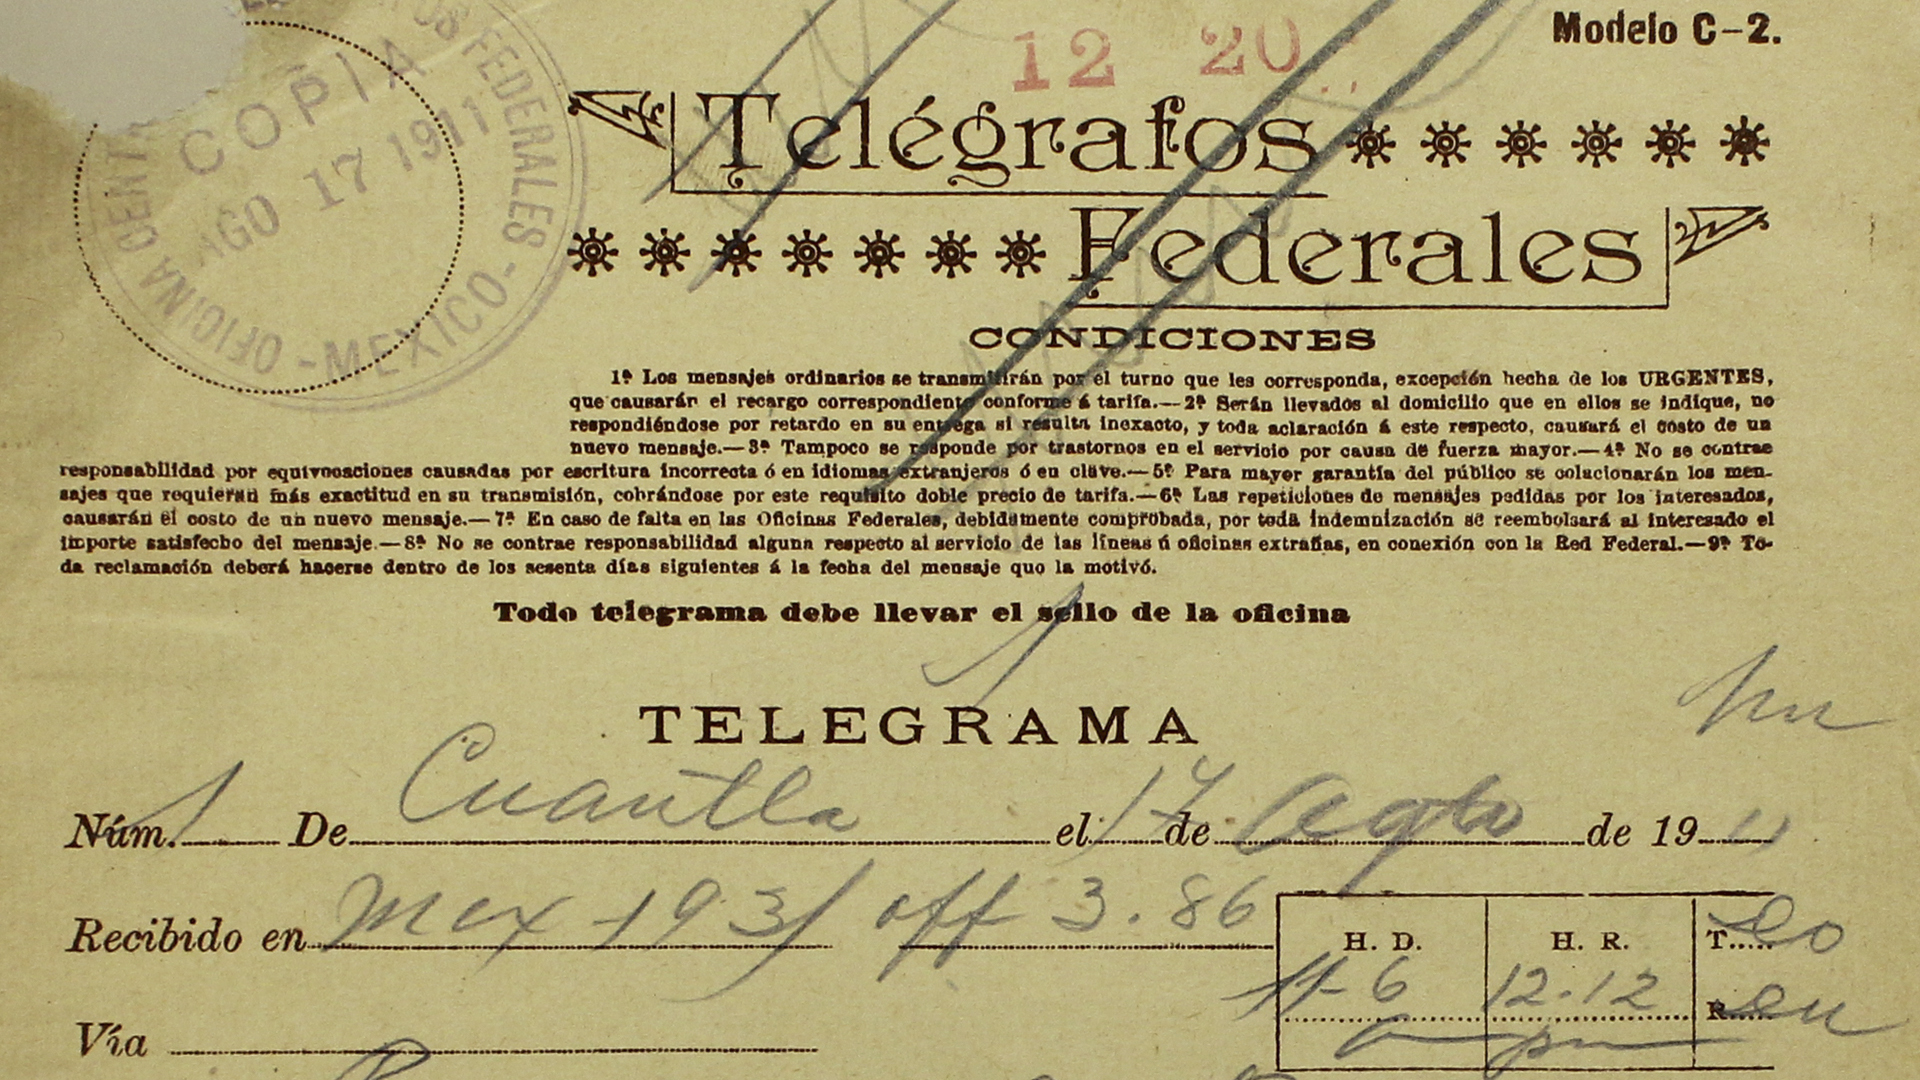 Modelo C-2.
12 20
COPIA
AGO 17 1911
FEDERALES - MEXICO - OFICINA
Telégrafos
Federales
CONDICIONES
1ª Los mensajes ordinarios se transmitirán por el turno que les corresponda, excepción hecha de los URGENTES,
que causarán el recargo correspondiente conforme á tarifa.—2ª Serán llevados al domicilio que en ellos se indique, no
respondiéndose por retardo en su entrega si resulta inexacto, y toda aclaración á este respecto, causará el costo de un
nuevo mensaje.—3ª Tampoco se responde por trastornos en el servicio por causa de fuerza mayor.—4ª No se contrae
responsabilidad por equivocaciones causadas por escritura incorrecta ó en idiomas extranjeros ó en clave.—5ª Para mayor garantía del público se colacionarán los men-
sajes que requieran más exactitud en su transmisión, cobrándose por este requisito doble precio de tarifa.—6ª Las repeticiones de mensajes pedidas por los interesados,
causarán el costo de un nuevo mensaje.—7ª En caso de falta en las Oficinas Federales, debidamente comprobada, por toda indemnización se reembolsará al interesado el
importe satisfecho del mensaje.—8ª No se contrae responsabilidad alguna respecto al servicio de las líneas ú oficinas extrañas, en conexión con la Red Federal.—9ª To-
da reclamación deberá hacerse dentro de los sesenta días siguientes á la fecha del mensaje que la motivó.
Todo telegrama debe llevar el sello de la oficina
TELEGRAMA
Núm. 1 De Cuautla el 17 de Agto de 1911
Recibido en Mex 193 off 3.86
H. D. H. R. T.
11-6 12.12 R.
Vía